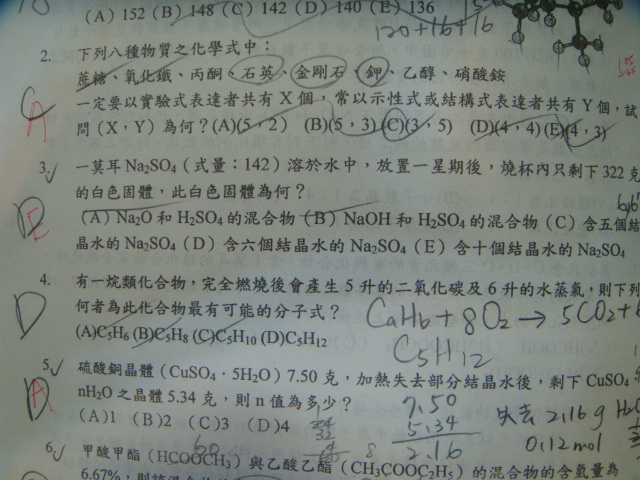 (A) 152 (B) 148 (C) 142 (D) 140 (E) 136
120+16+16
2. 下列八種物質之化學式中：
蔗糖、氧化鐵、丙酮、石英、金剛石、鉀、乙醇、硝酸銨
一定要以實驗式表達者共有 X 個，常以示性式或結構式表達者共有 Y 個，試
問（X，Y）為何？(A)(5，2) (B)(5，3) (C)(3，5) (D)(4，4) (E)(4，3)
C A
3. 一莫耳 Na₂SO₄（式量：142）溶於水中，放置一星期後，燒杯內只剩下 322 克
的白色固體，此白色固體為何？
(A) Na₂O 和 H₂SO₄ 的混合物 (B) NaOH 和 H₂SO₄ 的混合物 (C) 含五個結
晶水的 Na₂SO₄ (D) 含六個結晶水的 Na₂SO₄ (E) 含十個結晶水的 Na₂SO₄
D E
4. 有一烷類化合物，完全燃燒後會產生 5 升的二氧化碳及 6 升的水蒸氣，則下列
何者為此化合物最有可能的分子式？
(A)C₅H₆ (B)C₅H₈ (C)C₅H₁₀ (D)C₅H₁₂
D
CaHb + 8O₂ → 5CO₂+
C₅H₁₂
5. 硫酸銅晶體（CuSO₄．5H₂O）7.50 克，加熱失去部分結晶水後，剩下 CuSO₄
nH₂O 之晶體 5.34 克，則 n 值為多少？
(A)1 (B)2 (C)3 (D)4
D A
7.50
5.34
2.16
失去 2.16g H₂O
0.12mol
60
6. 甲酸甲酯（HCOOCH₃）與乙酸乙酯（CH₃COOC₂H₅）的混合物的含氧量為
6.67%，則該混合